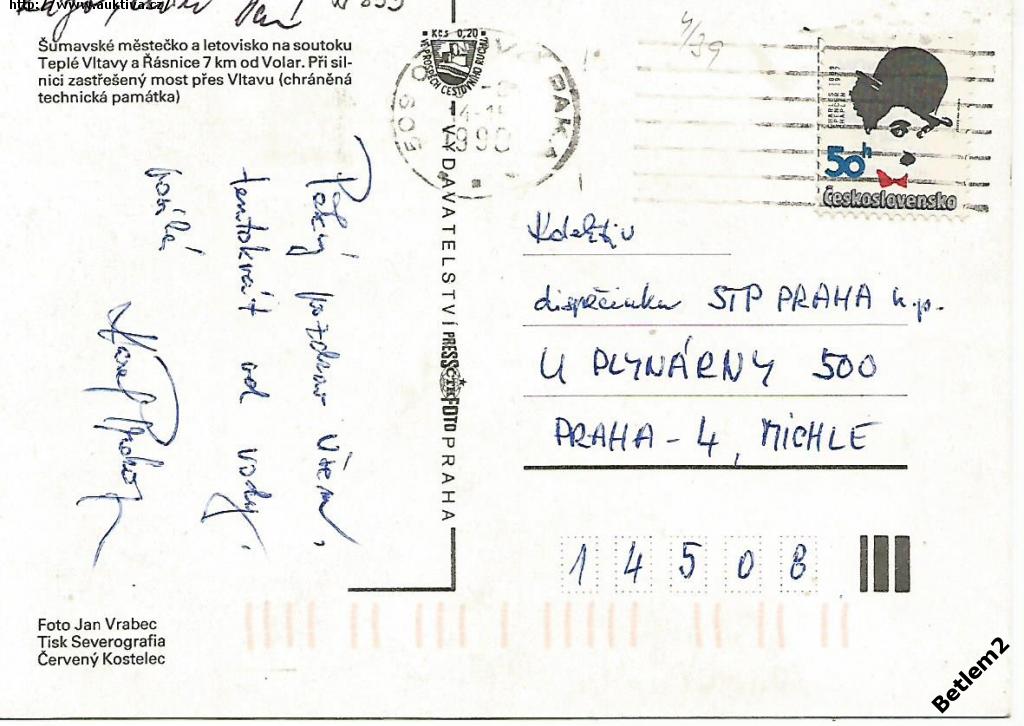 http://www.auktiva.cz
Šumavské městečko a letovisko na soutoku
Teplé Vltavy a Řásnice 7 km od Volar. Při sil-
nici zastřešený most přes Vltavu (chráněná
technická památka)
Pěkný pozdrav Všem,
tentokrát od vody.
posílá
Foto Jan Vrabec
Tisk Severografia
Červený Kostelec
Kčs 0,20
VYDAVATELSTVÍ PRESSFOTO PRAHA
4/39
50h
Československo
Kolektiv
dispečinku STP PRAHA n.p.
U PLYNÁRNY 500
PRAHA - 4, MICHLE
14508
Betlem2